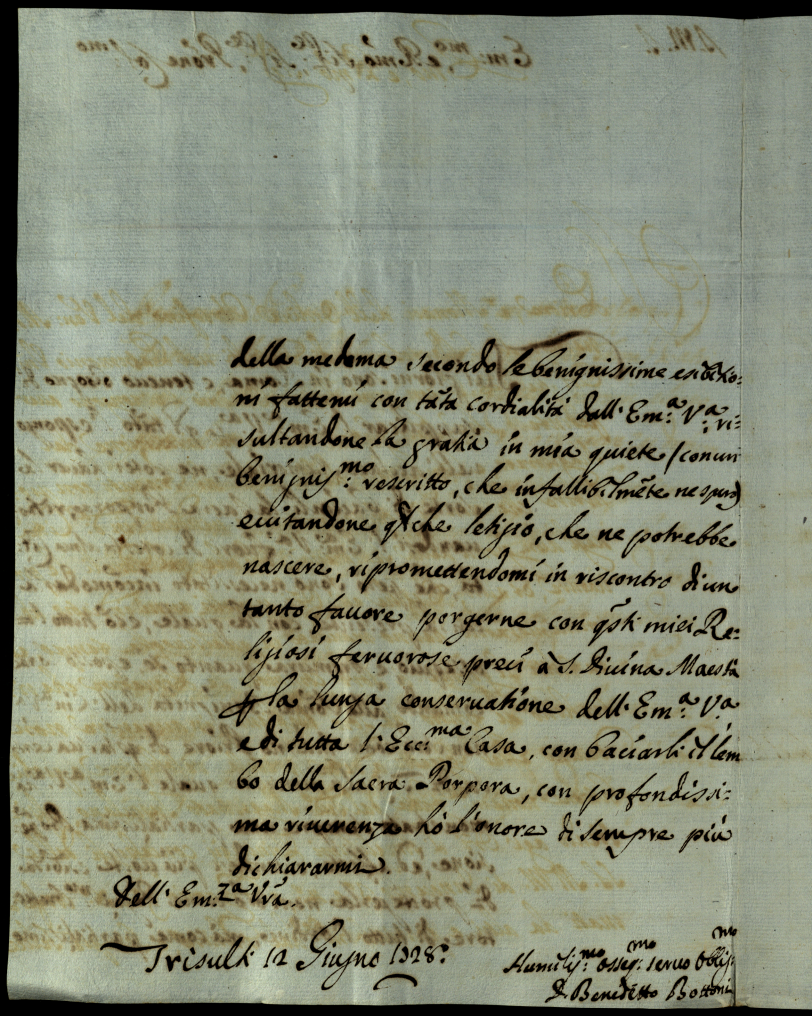 della medema secondo le benignissime esibitio:
ni fattemi con tãta cordialità dall' Em.ª V.ª ri=
sultandone la gratia in mia quiete (con un
benignis.mo rescritto, che infallibilmẽte ne spero)
evitandone qlche letigio, che ne potrebbe
nascere, ripromettendomi in riscontro di un
tanto favore porgerne con qsti miei Re:
ligiosi fervorose preci à S. Divina Maestà
p la lunga conservatione dell' Em.ª V.ª
e di tutta l' Ecc.ma Casa, con baciarli il lem
bo della Sacra Porpora, con profondissi:
ma riverenza hò l'onore di sempre più
dichiararmi.
Dell' Em.za Vrã.
Trisulti 12 Giugno 1728.
Humilis.mo osseq.mo servo Oblig.mo
D. Benedetto Bottoni